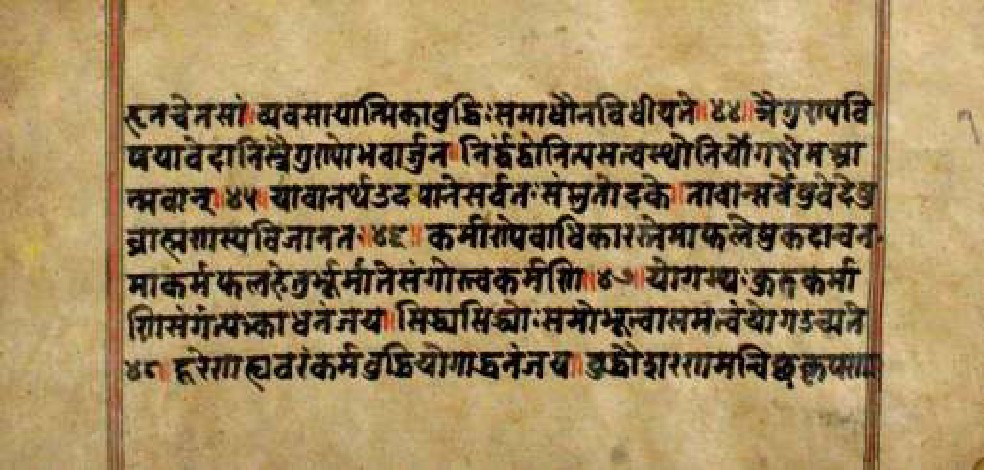 हृतचेतसां व्यवसायात्मिकाबुद्धिःसमाधौनविधीयते॥४४॥त्रैगुण्यवि
षयावेदानिस्त्रैगुण्योभवार्जुन।निर्द्वंद्वोनित्यसत्वस्थोनिर्योगक्षेमआ
त्मवान्॥४५॥यावानर्थउदपानेसर्वतःसंप्लुतोदके।तावान्सर्वेषुवेदेषु
ब्राह्मणस्यविजानतः॥४६॥कर्मण्येवाधिकारस्तेमाफलेषुकदाचन।
माकर्मफलहेतुर्भूर्मातेसंगोस्त्वकर्मणि॥४७॥योगस्थःकुरुकर्मा
णिसंगंत्यक्त्वाधनंजय॥सिद्ध्यसिद्ध्योःसमोभूत्वासमत्वंयोगउच्यते
४८दूरेणह्यवरंकर्मबुद्धियोगाद्धनंजय॥बुद्धौशरणमन्विच्छकृपणाः